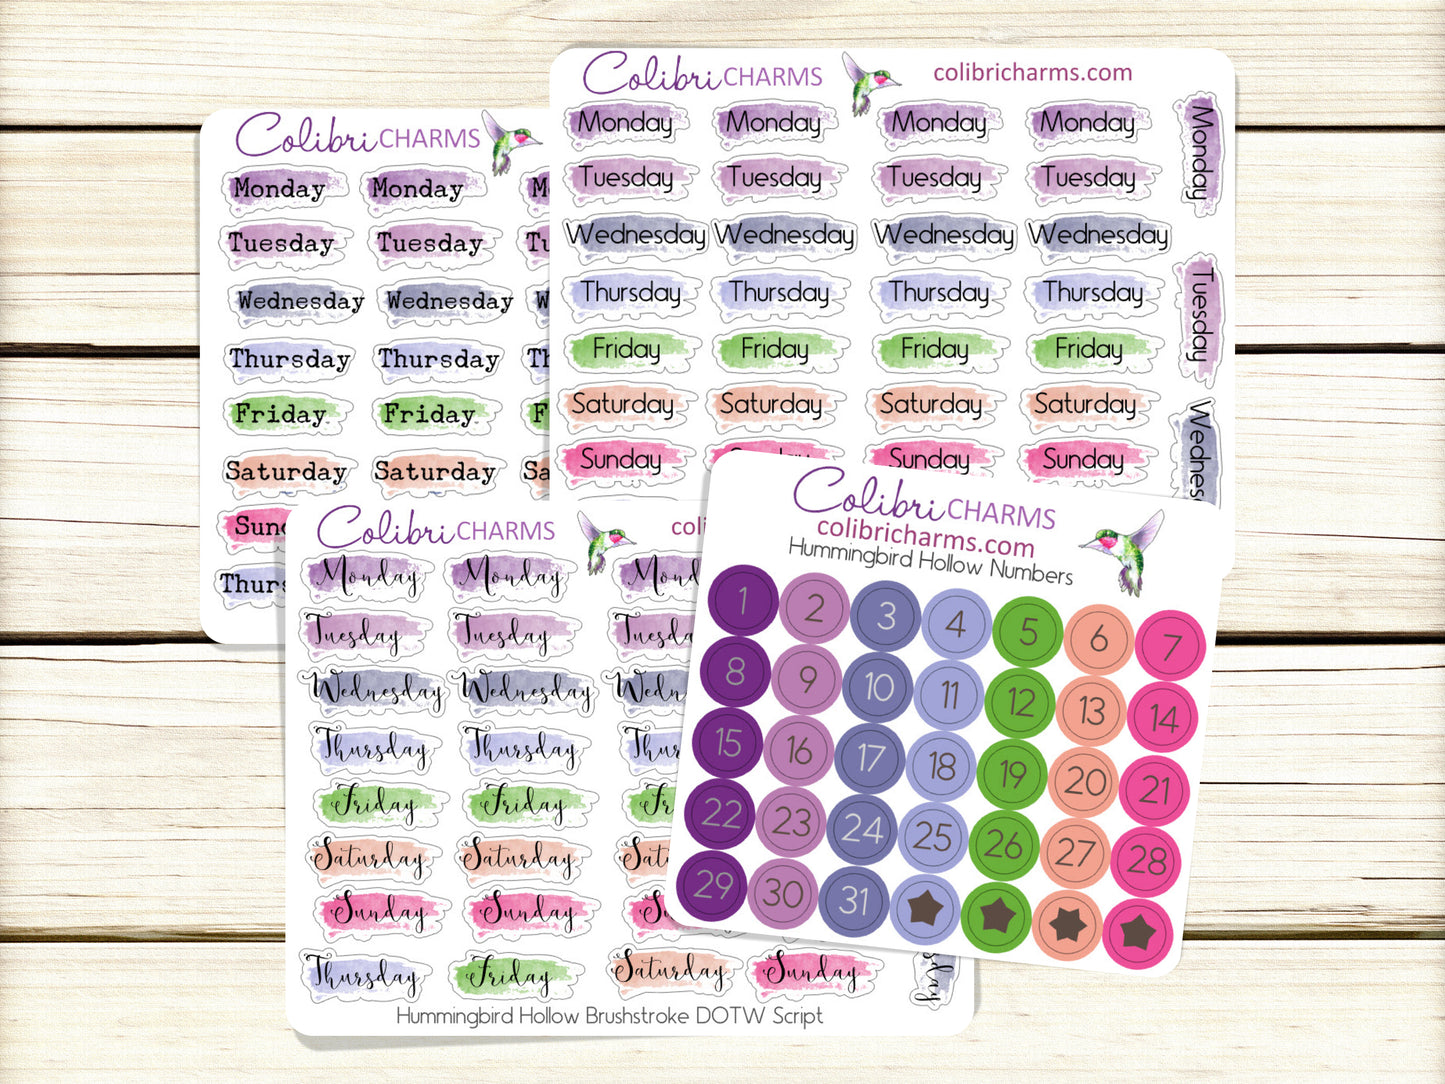 Colibri CHARMS
Monday Monday M
Tuesday Tuesday Tu
Wednesday Wednesday W
Thursday Thursday Th
Friday Friday F
Saturday Saturday Sa
Sund
Thurs
Colibri CHARMS colibricharms.com
Monday Monday Monday Monday Monday
Tuesday Tuesday Tuesday Tuesday Tuesday
Wednesday Wednesday Wednesday Wednesday Wednes
Thursday Thursday Thursday Thursday
Friday Friday Friday Friday
Saturday Saturday Saturday Saturday
Sunday Sunday Sunday Sunday
Colibri CHARMS coli
Monday Monday Mond
Tuesday Tuesday Tuesda
Wednesday Wednesday Wedn
Thursday Thursday Thur
Friday Friday Fr
Saturday Saturday Sat
Sunday Sunday Su
Thursday Friday Saturday Sunday sday
Hummingbird Hollow Brushstroke DOTW Script
Colibri CHARMS
colibricharms.com
Hummingbird Hollow Numbers
1 2 3 4 5 6 7
8 9 10 11 12 13 14
15 16 17 18 19 20 21
22 23 24 25 26 27 28
29 30 31